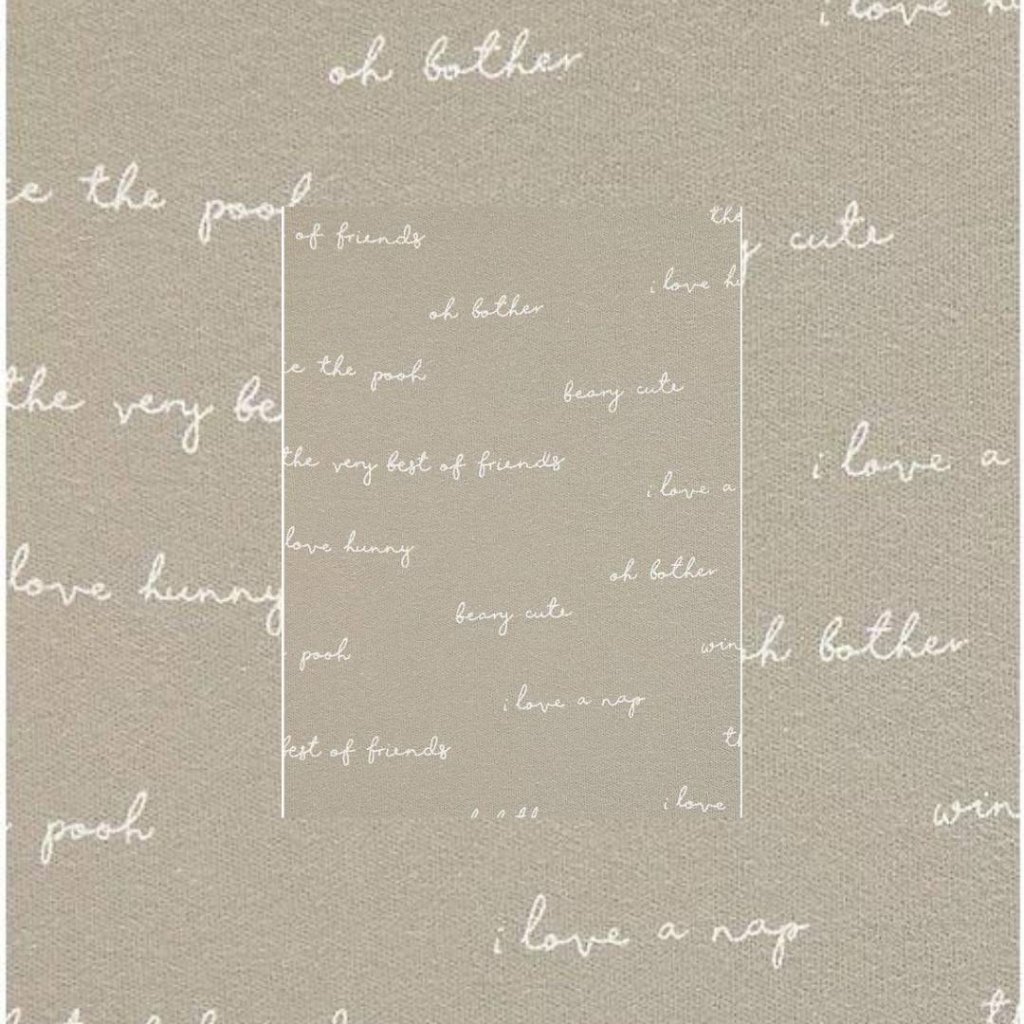 i love
oh bother
the
of friends
cute
i love
oh bother
the pooh
the pooh
beary cute
the very
the very best of friends
i love a
i love a
love hunny
love hunny
oh bother
beary cute
bother
pooh
i love a nap
best of friends
i love
pooh
i love a nap